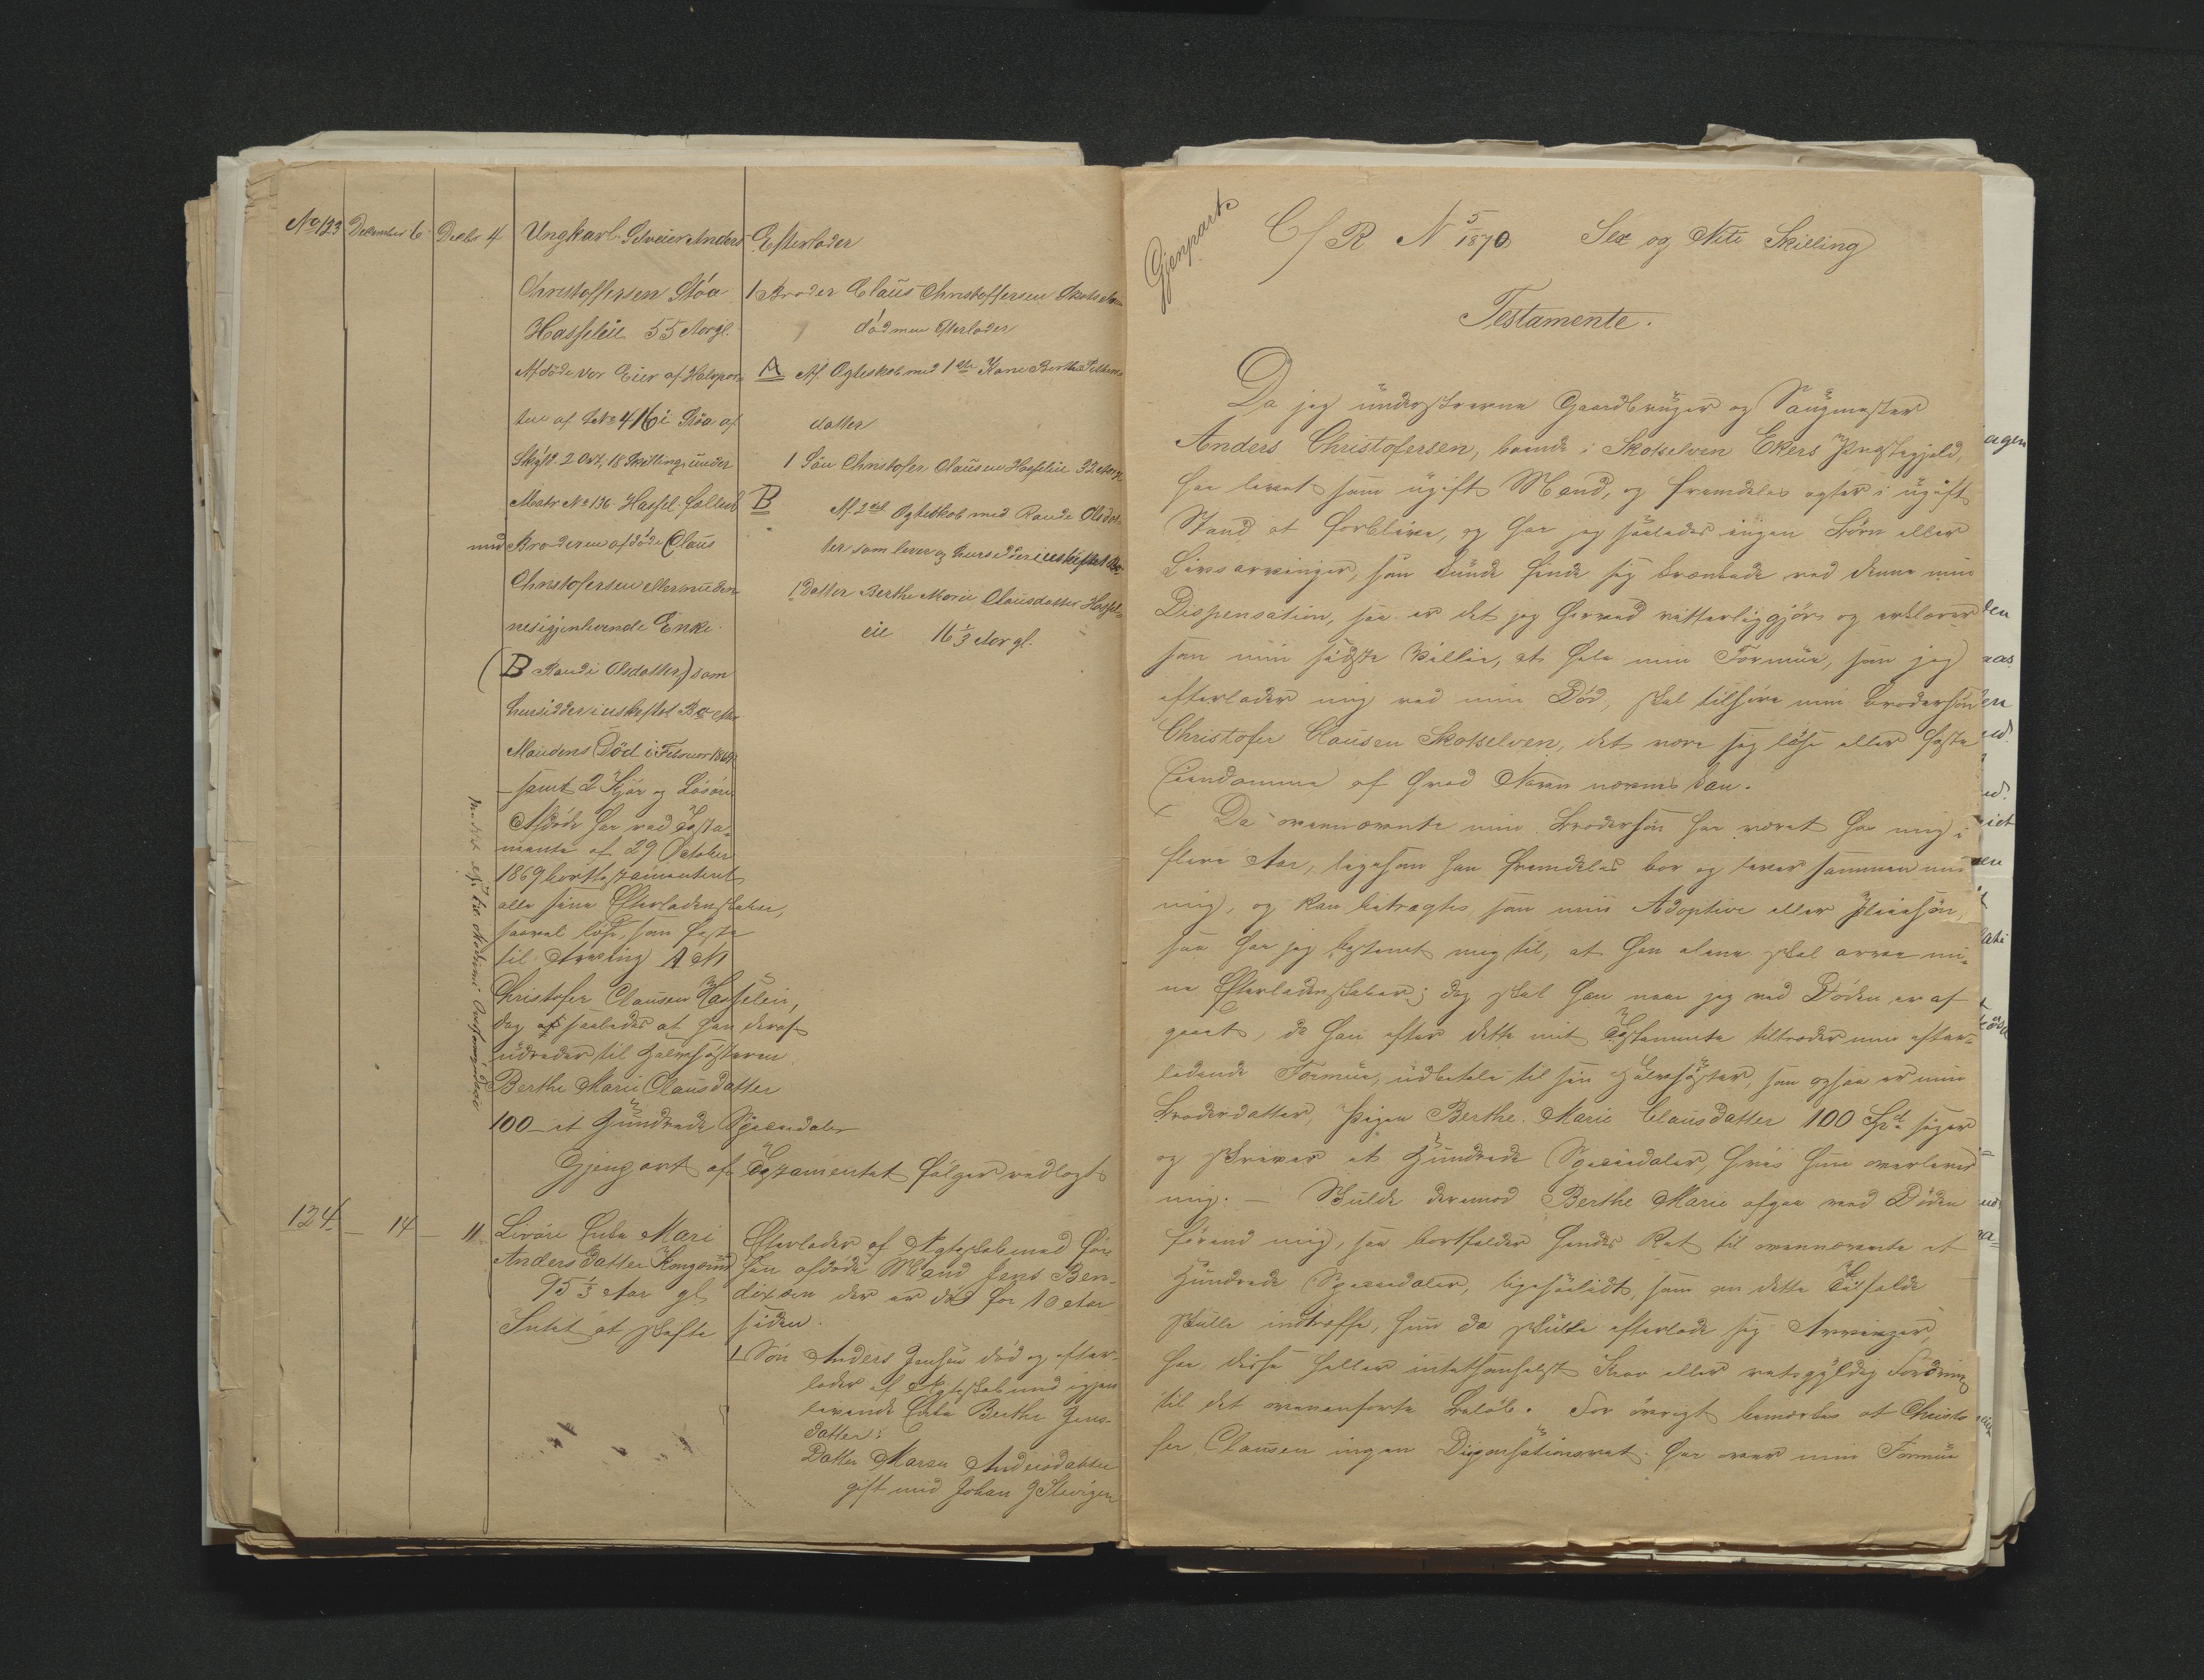 No 123 December 6 Decbr 4 Ungkarl Selveier Anders
Christoffersen Stöa
Hasseleie 55 Aar gl.
Afdöde var Eier af Halvpar-
ten af LNo 416 i Stöa af
Skyld 2 Ort, 18 Skilling, under
Matr No 136 Hassel. fælles
med Broderen afdöde Claus
Christofersen eller nu den-
nes igjenlevende Enke
(B Randi Olsdatter) som
hensidder i uskiftet Bo efter
Mandens Död i Februar 1869
- samt 2 Kjør og Lösöre
Afdöde har ved Testa-
mente af 29 October
1869 borttestamenteret
alle sine Efterladenskaber,
saavel löse, som faste
til Arving A No 1
Christofer Clausen Hasseleie,
dog saaledes at han deraf
udreder til Halvsösteren
Berthe Marie Clausdatter
100 - et Hundrede Speciedaler
Gjenpart af Testamentet fölger vedlagt
Efterlader
1 Broder Claus Christoffersen Skotselven
död men Efterlader
A Af Egteskab med 1ste Kone Berthe
datter
1 Sön Christofer Clausen Hasseleie 32 Aar gl
B Af 2det Egteskab med Randi Olsdat-
ter som lever og hensidder i uskiftet Bo
1 Datter Berthe Marie Clausdatter Hassel-
eie 16 1/3 Aar gl.
124 - 14 - 11 Enke Mari
Anders Datter Kongsrud
95 1/3 Aar gl
Intet at skifte
Efterlader af Ægteskab med för
hen afdöde Mand Jens Ben-
dixen der er död for 10 Aar
siden.
1 Sön Anders Jensen död og efter-
lader af Ægteskab med igjen
levende Enke Berthe Jens-
datter:
Datter Maren Andersdatter
gift med Johan
Gjenpart
C/R N 5/1870 Sex og Niti Skilling
Testamente.
Da jeg underskrevne Gaardbruger og Saugmester
Anders Christofersen, boende i Skotselven Ekers Præstegjeld,
har levet som ugift Mand, og fremdeles agter i ugift
Stand at forblive, og har jeg saaledes ingen Börn eller
Livsarvinger, som kunde finde sig krænkede ved denne min
Dispensation, saa er det jeg herved vitterliggjör og erklærer
som min sidste Villie, at hele min Formue, som jeg
efterlader mig ved min Död, skal tilhöre min Brodersön
Christofer Clausen Skotselven, det være sig löse eller faste
Eiendomme af hvad Navn nævnes kan.
Da ovennævnte min Brodersön har været hos mig i
flere Aar, ligesom han fremdeles bor og lever sammen med
mig, og kan betragtes som min Adoptive eller Pleiesön,
saa har jeg bestemt mig til, at han alene skal arve mi-
ne Efterladenskaber; dog skal han naar jeg ved Döden er af
gaaet, da han efter dette mit Testamente tiltræder min efter-
ladende Formue, udbetale til sin Halvsöster, som ogsaa er min
Broderdatter, Pigen Berthe Marie Clausdatter 100 Spd siger
og skriver et Hundrede Speciedaler, hvis hun overlever
mig. - Skulde derimod Berthe Marie afgaa ved Döden
forend mig, saa bortfalder hendes Ret til ovennævnte et
Hundrede Speciedaler, ligesaalidt, som om dette Tilfælde
skulle indtræffe, hun da skulde efterlade sig Arvinger,
har disse heller intetsomhelst Krav eller retsgyldig Fordring
til det ovenanförte Belöb. For övrigt bemærkes at Christo
fer Clausen ingen Dispensationsret har over min Formue